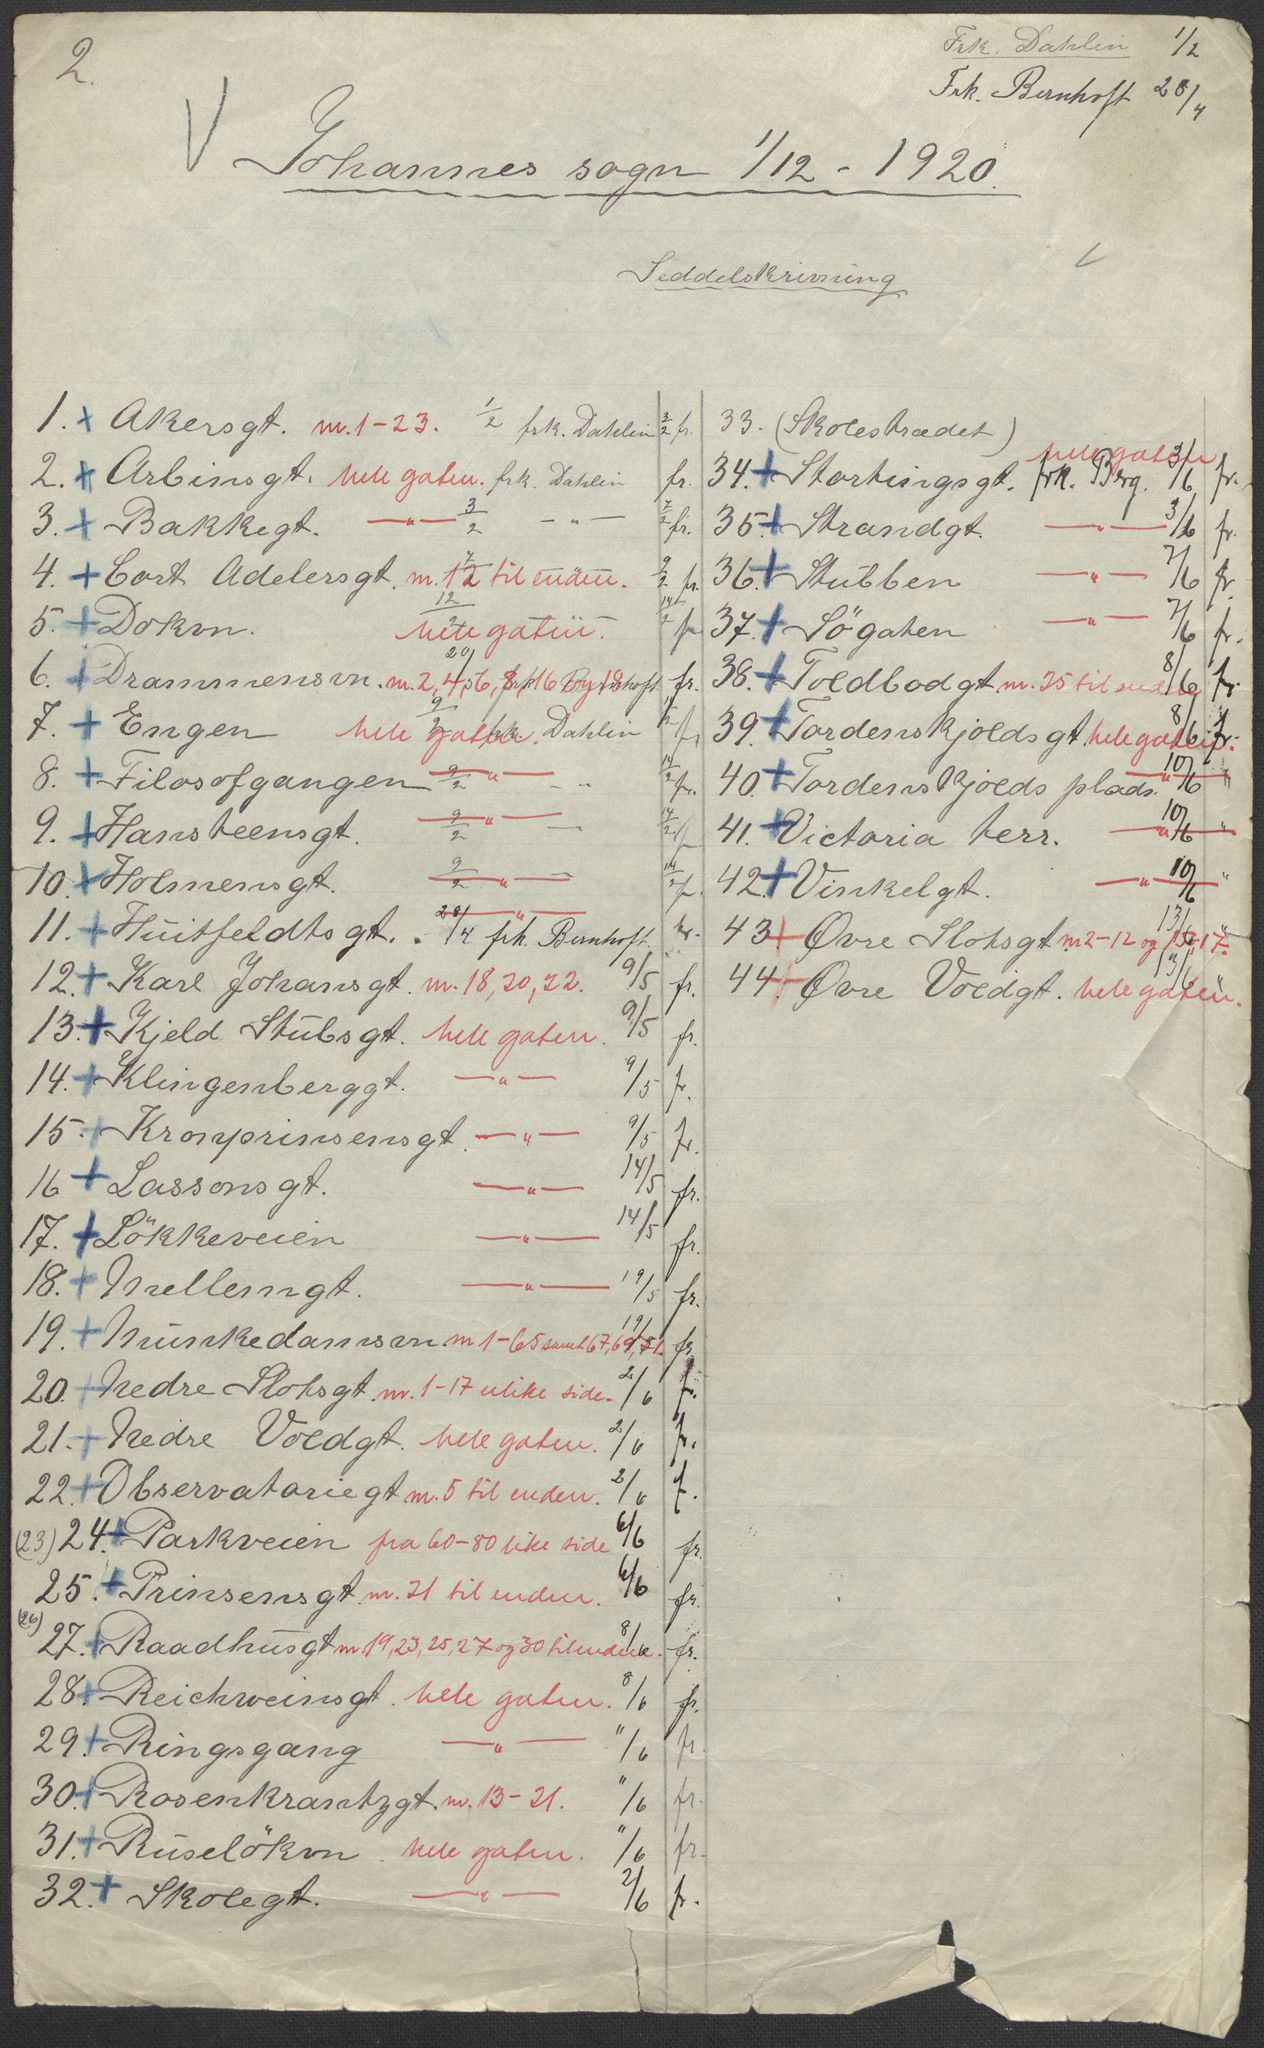 2.
Frk. Dahlin 1/2
Frk. Bernhoft 28/4
V
Johannes sogn 1/12 - 1920.
Seddelskrivning
1. + Akersgt. nr. 1-23. 1/2 frk. Dahlin 3/2 fr.
2. + Arbinsgt. hele gaten. frk. Dahlin fr.
3. + Bakkegt. —"— 3/2 —"— 7/2 fr.
4. + Cort Adelersgt. nr. 12 til enden. 7/2 9/2 fr.
5. + Dokvn. 12/2 hele gaten. 14/2 fr
6. + Drammensvn. nr. 2, 4, 6, 8, 16 og 18 20/4 frk. Bernhoft fr.
7. + Engen hele gaten. 9/2 frk. Dahlin fr
8. + Filosofgangen —"— 9/2 —"— 14/2 fr.
9. + Hansteensgt. —"— 9/2 — 14/2 fr
10. + Holmensgt. —"— 9/2 — 14/2 fr.
11. + Huitfeldtsgt. —"— 28/4 frk. Bernhoft. fr.
12. + Karl Johansgt. nr. 18, 20, 22. 9/5 fr.
13. + Kjeld Stubsgt. hele gaten. 9/5 fr.
14. + Klingenberggt. —"— 9/5 fr.
15. + Kronprinsensgt. —"— 9/5 fr.
16 + Lassonsgt. —"— 14/5 fr.
17. + Lökkeveien —"— 14/5 fr.
18. + Mellemgt. —"— 19/5 fr.
19. + Munkedamsvn nr 1-65 samt 67, 69, 19/5 fr.
20. + Nedre Slotsgt. nr. 1-17 ulike side. 2/6 fr.
21. + Nedre Voldgt. hele gaten. 2/6 fr.
22. + Observatoriegt nr. 5 til enden. 2/6 f.
(23) 24. + Parkveien fra 60-80 like side 6/6 fr.
25. + Prinsensgt. nr. 21 til enden. 6/6 fr.
(26) 27. + Raadhusgt nr. 19, 23, 25, 27 og 30 til enden. 8/6 fr.
28. + Reichweinsgt. hele gaten. 8/6 fr.
29. + Ringsgang —"— "/6 fr.
30. + Rosenkrantzgt. nr. 13-21. "/6 fr.
31. + Ruselökvn. hele gaten. "/6 fr.
32. + Skolegt. —"— 2/6 fr.
33. (Skolestrædet)
34. + Stortingsgt. hele gaten frk. Berg. 3/6 fr.
35. + Strandgt. —"— 3/6 fr.
36. + Stubben —"— 7/6 fr.
37. + Sögaten —"— 7/6 fr.
38. + Toldbodgt nr. 25 til enden 8/6 fr.
39. + Tordenskjoldsgt. hele gaten. 8/6 fr.
40. + Tordenskjolds plads. —"— 10/6 "
41. + Victoria terr. —"— 10/6 "
42. + Vinkelgt. —"— 10/6 "
43 + Øvre Slotsgt. nr 2-12 og 15, 17. 13/6
44 + Øvre Voldgt. hele gaten.